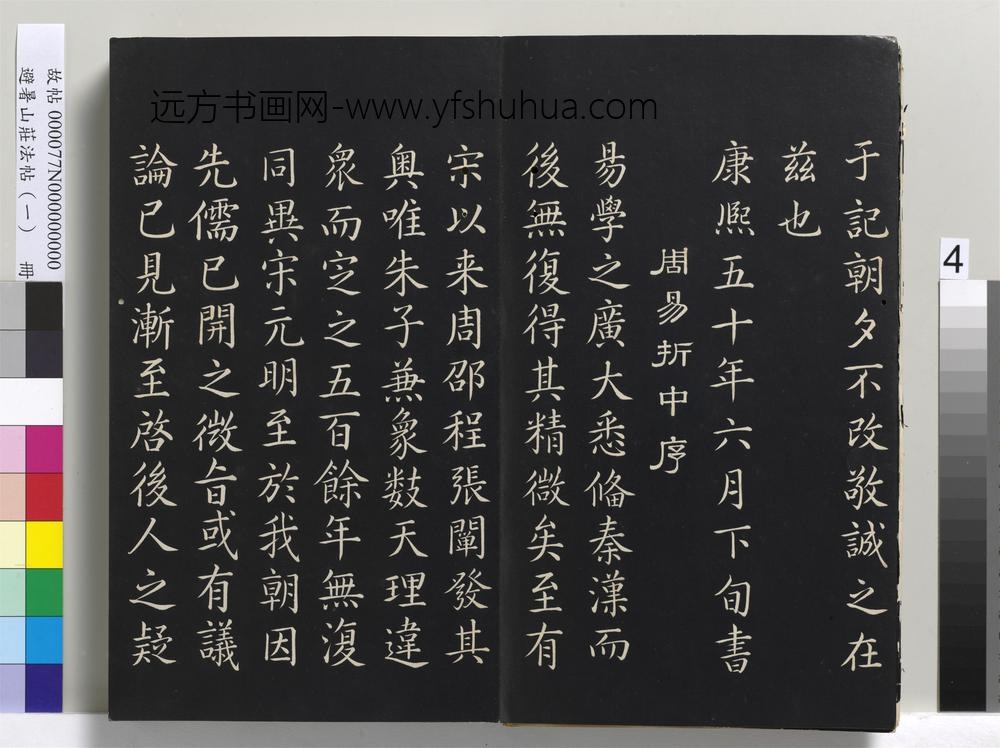 远方书画网-www.yfshuhua.com
于記朝夕不改敬誠之在
茲也
康熙五十年六月下旬書
周易折中序
易學之廣大悉俻秦漢而
後無復得其精微矣至有
宋以来周邵程張闡發其
奥唯朱子蕪象數天理違
衆而定之五百餘年無復
同異宋元明至於我朝因
先儒已開之微旨或有議
論已見漸至啓後人之疑
故帖 000077N000000000
避暑山莊法帖(一) 冊
4